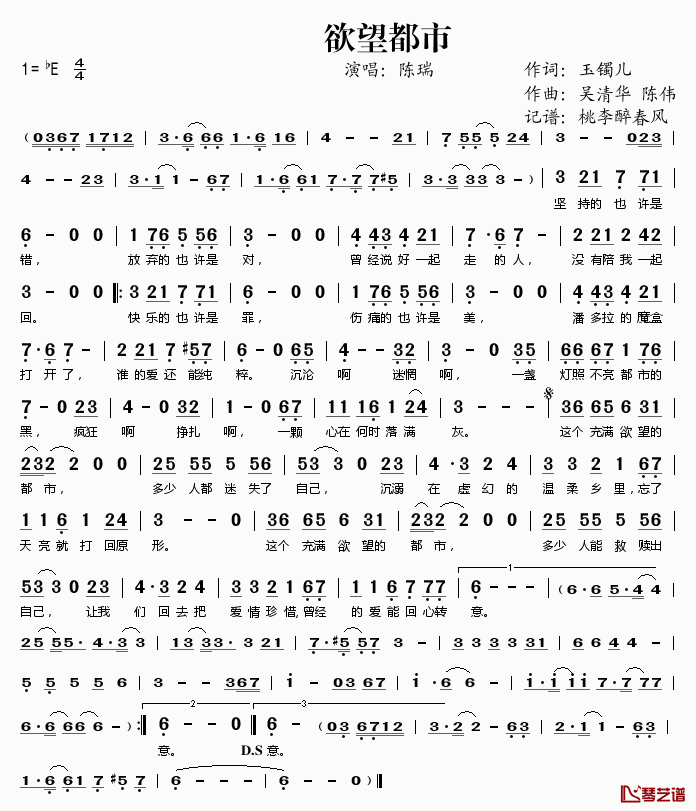 欲望都市
1= ♭E 4/4 演唱：陈瑞 作词：玉镯儿
作曲：吴清华 陈伟
记谱：桃李醉春风
（0367 1712 | 3·6 66 1·6 16 | 4 - - 21 | 7 55 5 24 | 3 - - 023 |
4 - - 23 | 3·1 1 - 67 | 1·6 61 7·7 7#5 | 3·3 33 3 - ）| 3 21 7 71 |
坚 持的 也 许是
6 - 0 0 | 1 76 5 56 | 3 - 0 0 | 4 43 4 21 | 7·6 7 - | 2 21 2 42 |
错， 放 弃的 也 许是 对， 曾 经说 好 一起 走 的 人， 没 有陪 我 一起
3 - 0 0 |: 3 21 7 71 | 6 - 0 0 | 1 76 5 56 | 3 - 0 0 | 4 43 4 21 |
回。 快 乐的 也 许是 罪， 伤 痛的 也 许是 美， 潘 多拉 的 魔盒
7·6 7 - | 2 21 7 #57 | 6 - 0 65 | 4 - - 32 | 3 - 0 35 | 66 67 1 76 |
打 开 了， 谁 的爱 还 能纯 粹。 沉沦 啊 迷惘 啊， 一盏 灯照 不亮 都 市的
7 - 0 23 | 4 - 0 32 | 1 - 0 67 | 11 16 1 24 | 3 - - - | 36 65 6 31 |
黑， 疯狂 啊 挣扎 啊， 一颗 心在 何时 落 满 灰。 这个 充满 欲 望的
232 2 0 0 | 25 55 5 56 | 53 3 0 23 | 4·3 2 4 | 3 3 2 1 67 |
都 市， 多少 人都 迷 失了 自己， 沉溺 在 虚 幻 的 温 柔 乡 里，忘了
1 1 6 1 24 | 3 - - 0 | 36 65 6 31 | 232 2 0 0 | 25 55 5 56 |
天 亮 就 打 回原 形。 这个 充满 欲 望的 都 市， 多少 人能 救 赎出
53 3 0 23 | 4·3 2 4 | 3 3 2 1 67 | 1 1 6 7 77 | 1 6 - - - | （6·6 65·4 4 |
自己， 让我 们 回 去 把 爱 情 珍 惜，曾经 的 爱 能 回 心转 意。
25 55· 4·3 3 | 13 33· 2 3 | 7·#5 5 7 | 3 - - - | 3 3 3 31 | 6 6 4 4 |
5 5 5 6 | 3 - - 367 | i - - 067 | i - 03 67 | i·i ii 7·7 77 |
6·6 66 6 - ）:| 2 6 - - 0 | 3 6 - - - | （03 6712 | 3·2 2 - 63 | 2·1 1 - 63 |
意。 D.S 意。
1·6 61 7 #5 7 | 6 - - - | 6 - - 0）||
琴艺谱